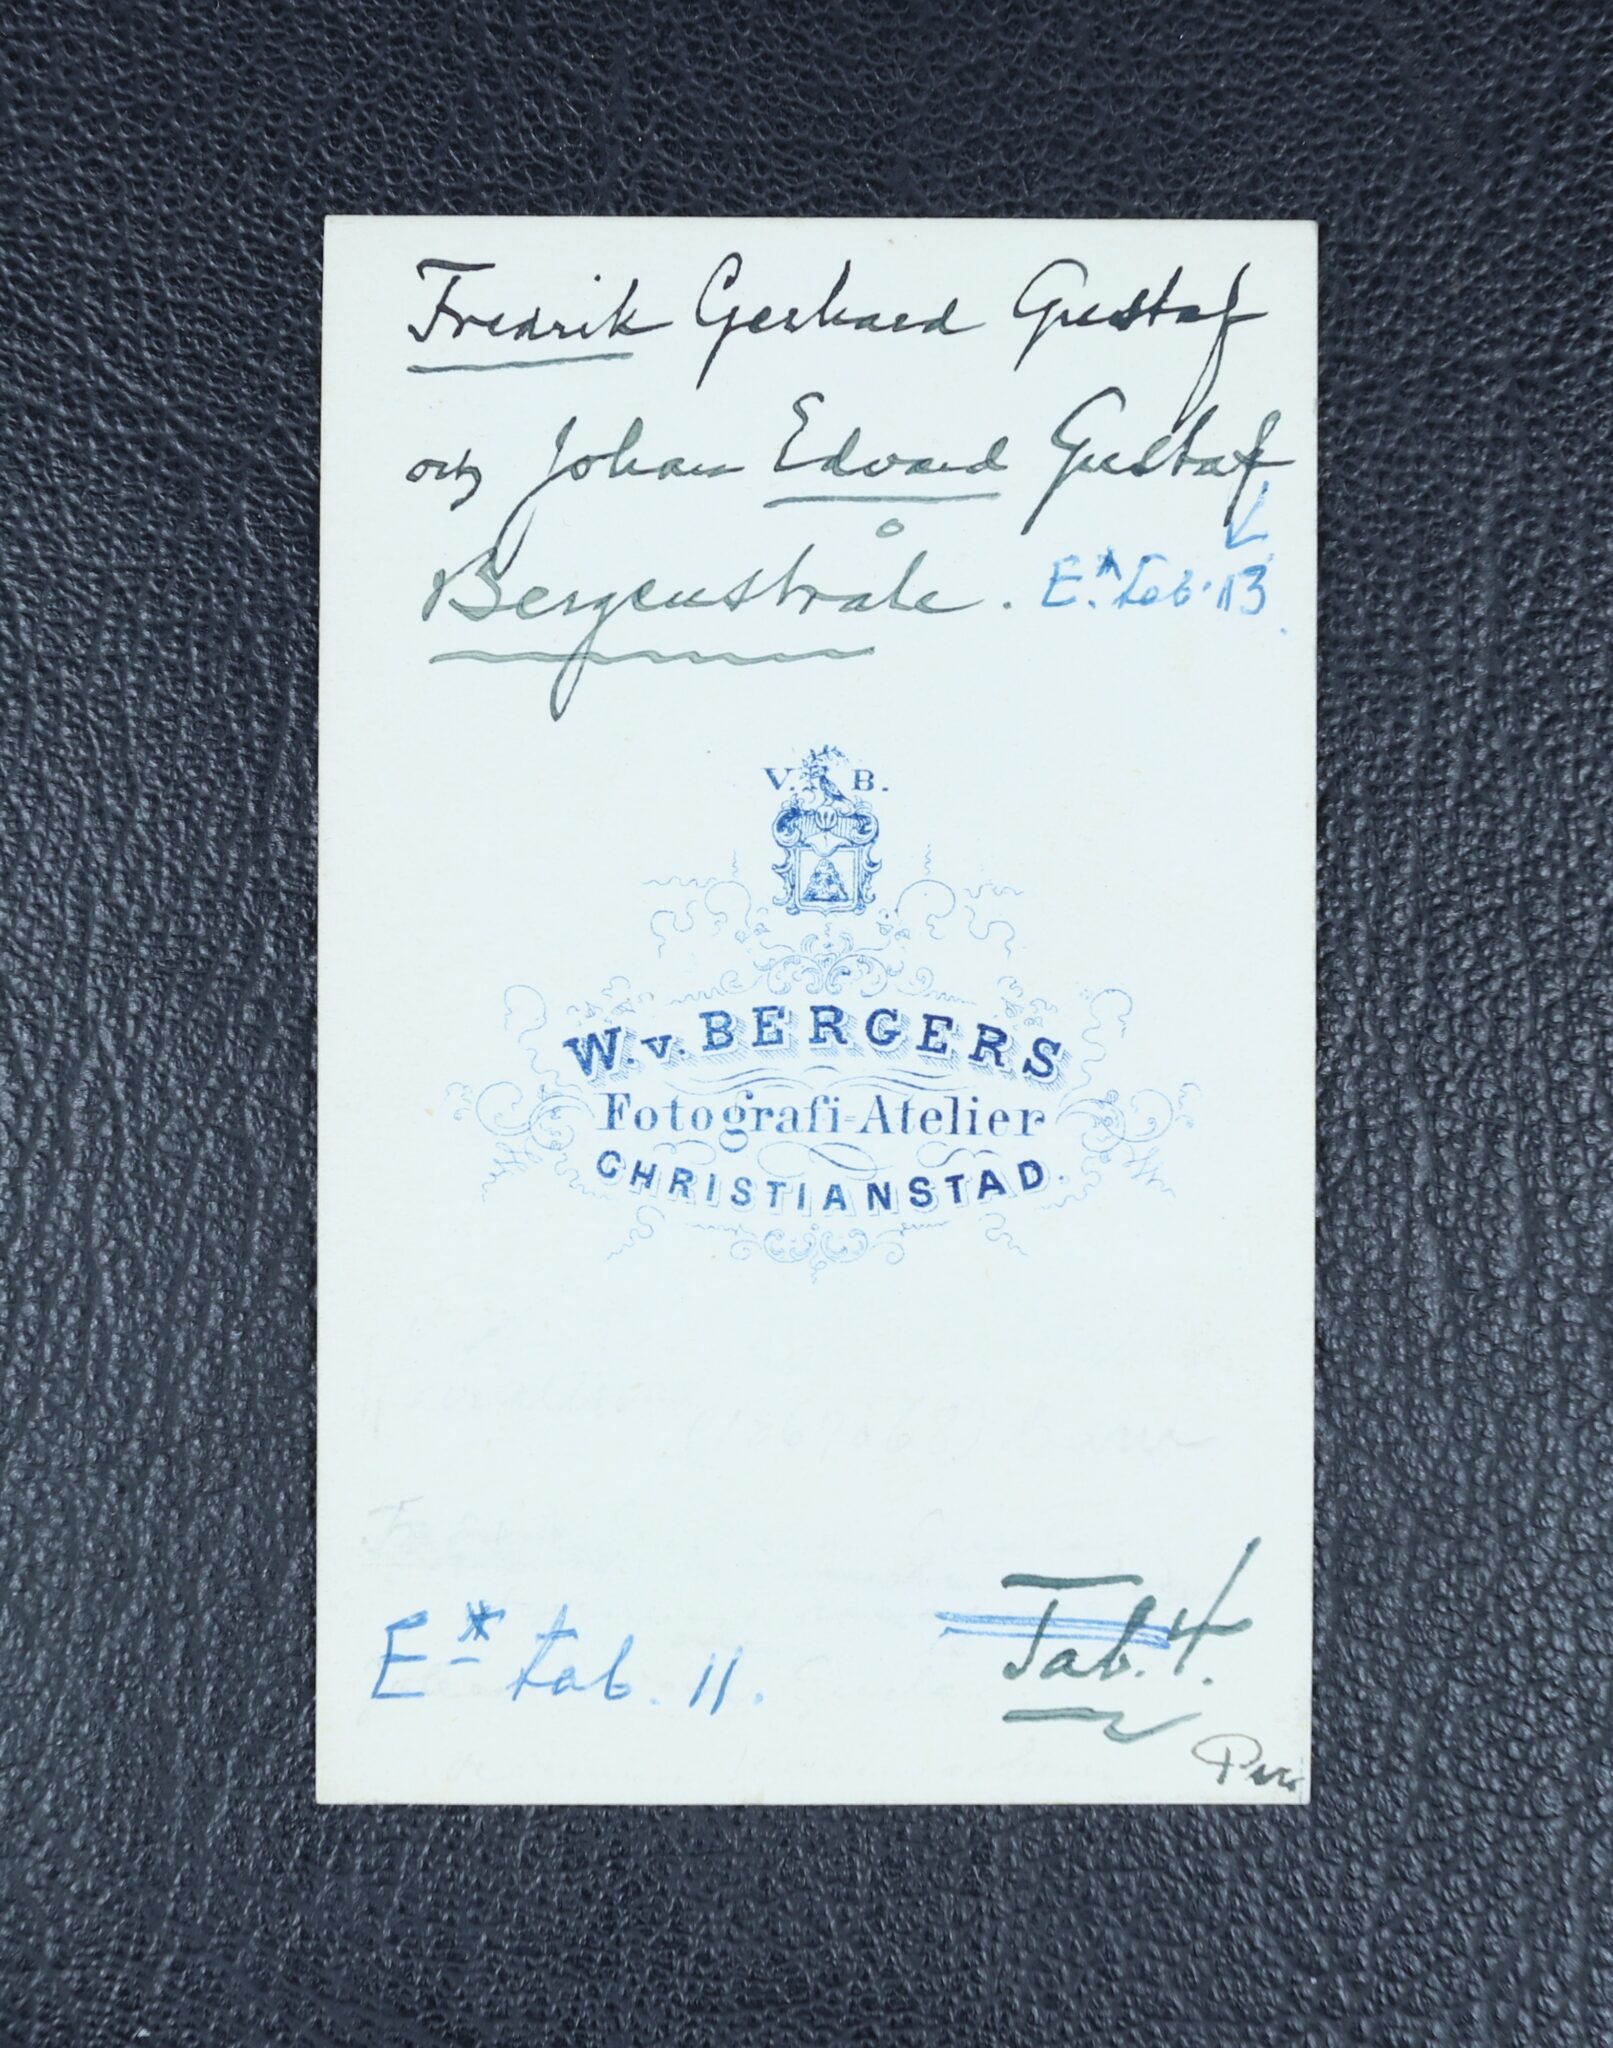 Fredrik Gerhard Gustaf
och Johan Edvard Gustaf
Bergenstråle. E.* tab. 13.
V. B.
W. v. BERGERS
Fotografi-Atelier
CHRISTIANSTAD.
(1867-68)
E* tab. 11.
Tab. 4.